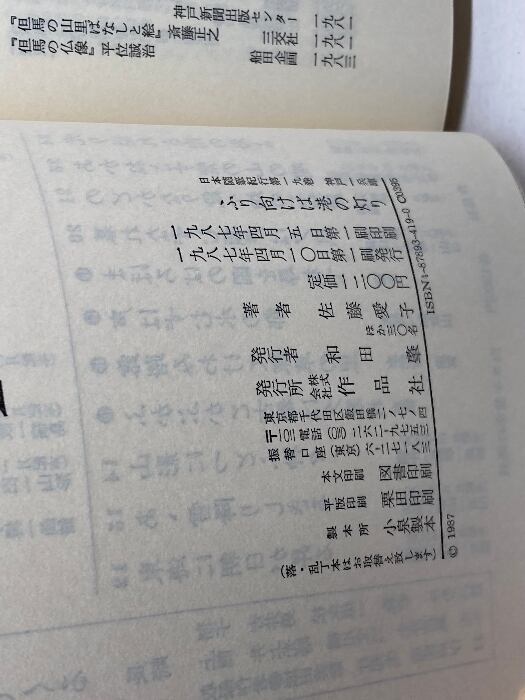 『但馬の山里ばなしと絵』斎藤正之 神戸新聞出版センター 一九八一
『但馬の仏像』平位誠治 三交社 一九八二
船田企画 一九八三
神戸 兵庫
ふり向けば港の灯り
一九八七年四月 五 日第一刷印刷
一九八七年四月一〇日第一刷発行
定価一二〇〇円
著者 佐藤愛子
ほか三〇名
発行者 和田肇
発行所 株式会社 作品社
東京都千代田区飯田橋二ノ七ノ四
電話(〇三)二六二-九七五三
振替口座(東京)六-二七一八三
本文印刷 図書印刷
平版印刷 栗田印刷
製本所 小泉製本
(落・乱丁本はお取替え致します)
ISBN4-87893-419-0 C0395
© 1987